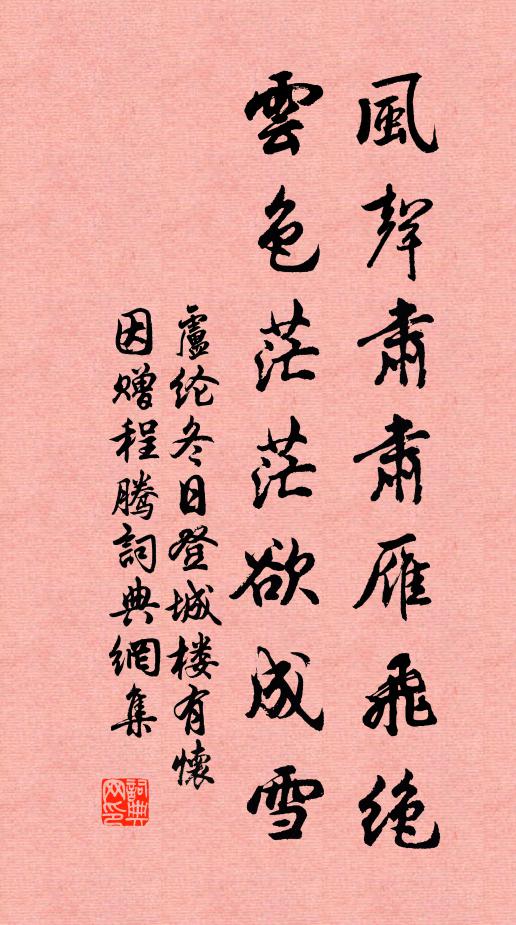 風聲肅肅雁飛絕
雲色茫茫欲成雪
盧纶冬日登城楼有懷
因赠程腾詞典網集
詞典
网印